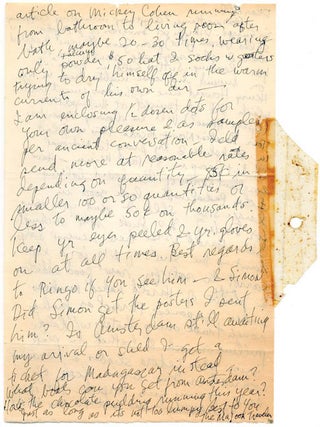 article on Mickey Cohen running
from bathroom to living room after
bath maybe 20-30 times, wearing
only powder $50 hat & socks w/ garters
trying to dry himself off in the warm
currents of his own air —
I am enclosing ½ dozen dots for
your own pleasure & as samples
per ancient conversation - I'd
send more at reasonable rates
depending on quantity - 85¢ in
smaller 100 or so quantities or
less to maybe 50¢ on thousands
Keep yr eyes peeled & yr. gloves
on at all times. Best regards
to Ringo if you see him — & Simon
Did Simon get the posters I sent
him? In Amsterdam still awaiting
my arrival or should I get a
ticket for Madagascar instead
What boat can you get from Amsterdam?
How's the chocolate pudding running this year?
Just as long as its not too lumpy, best to you
the